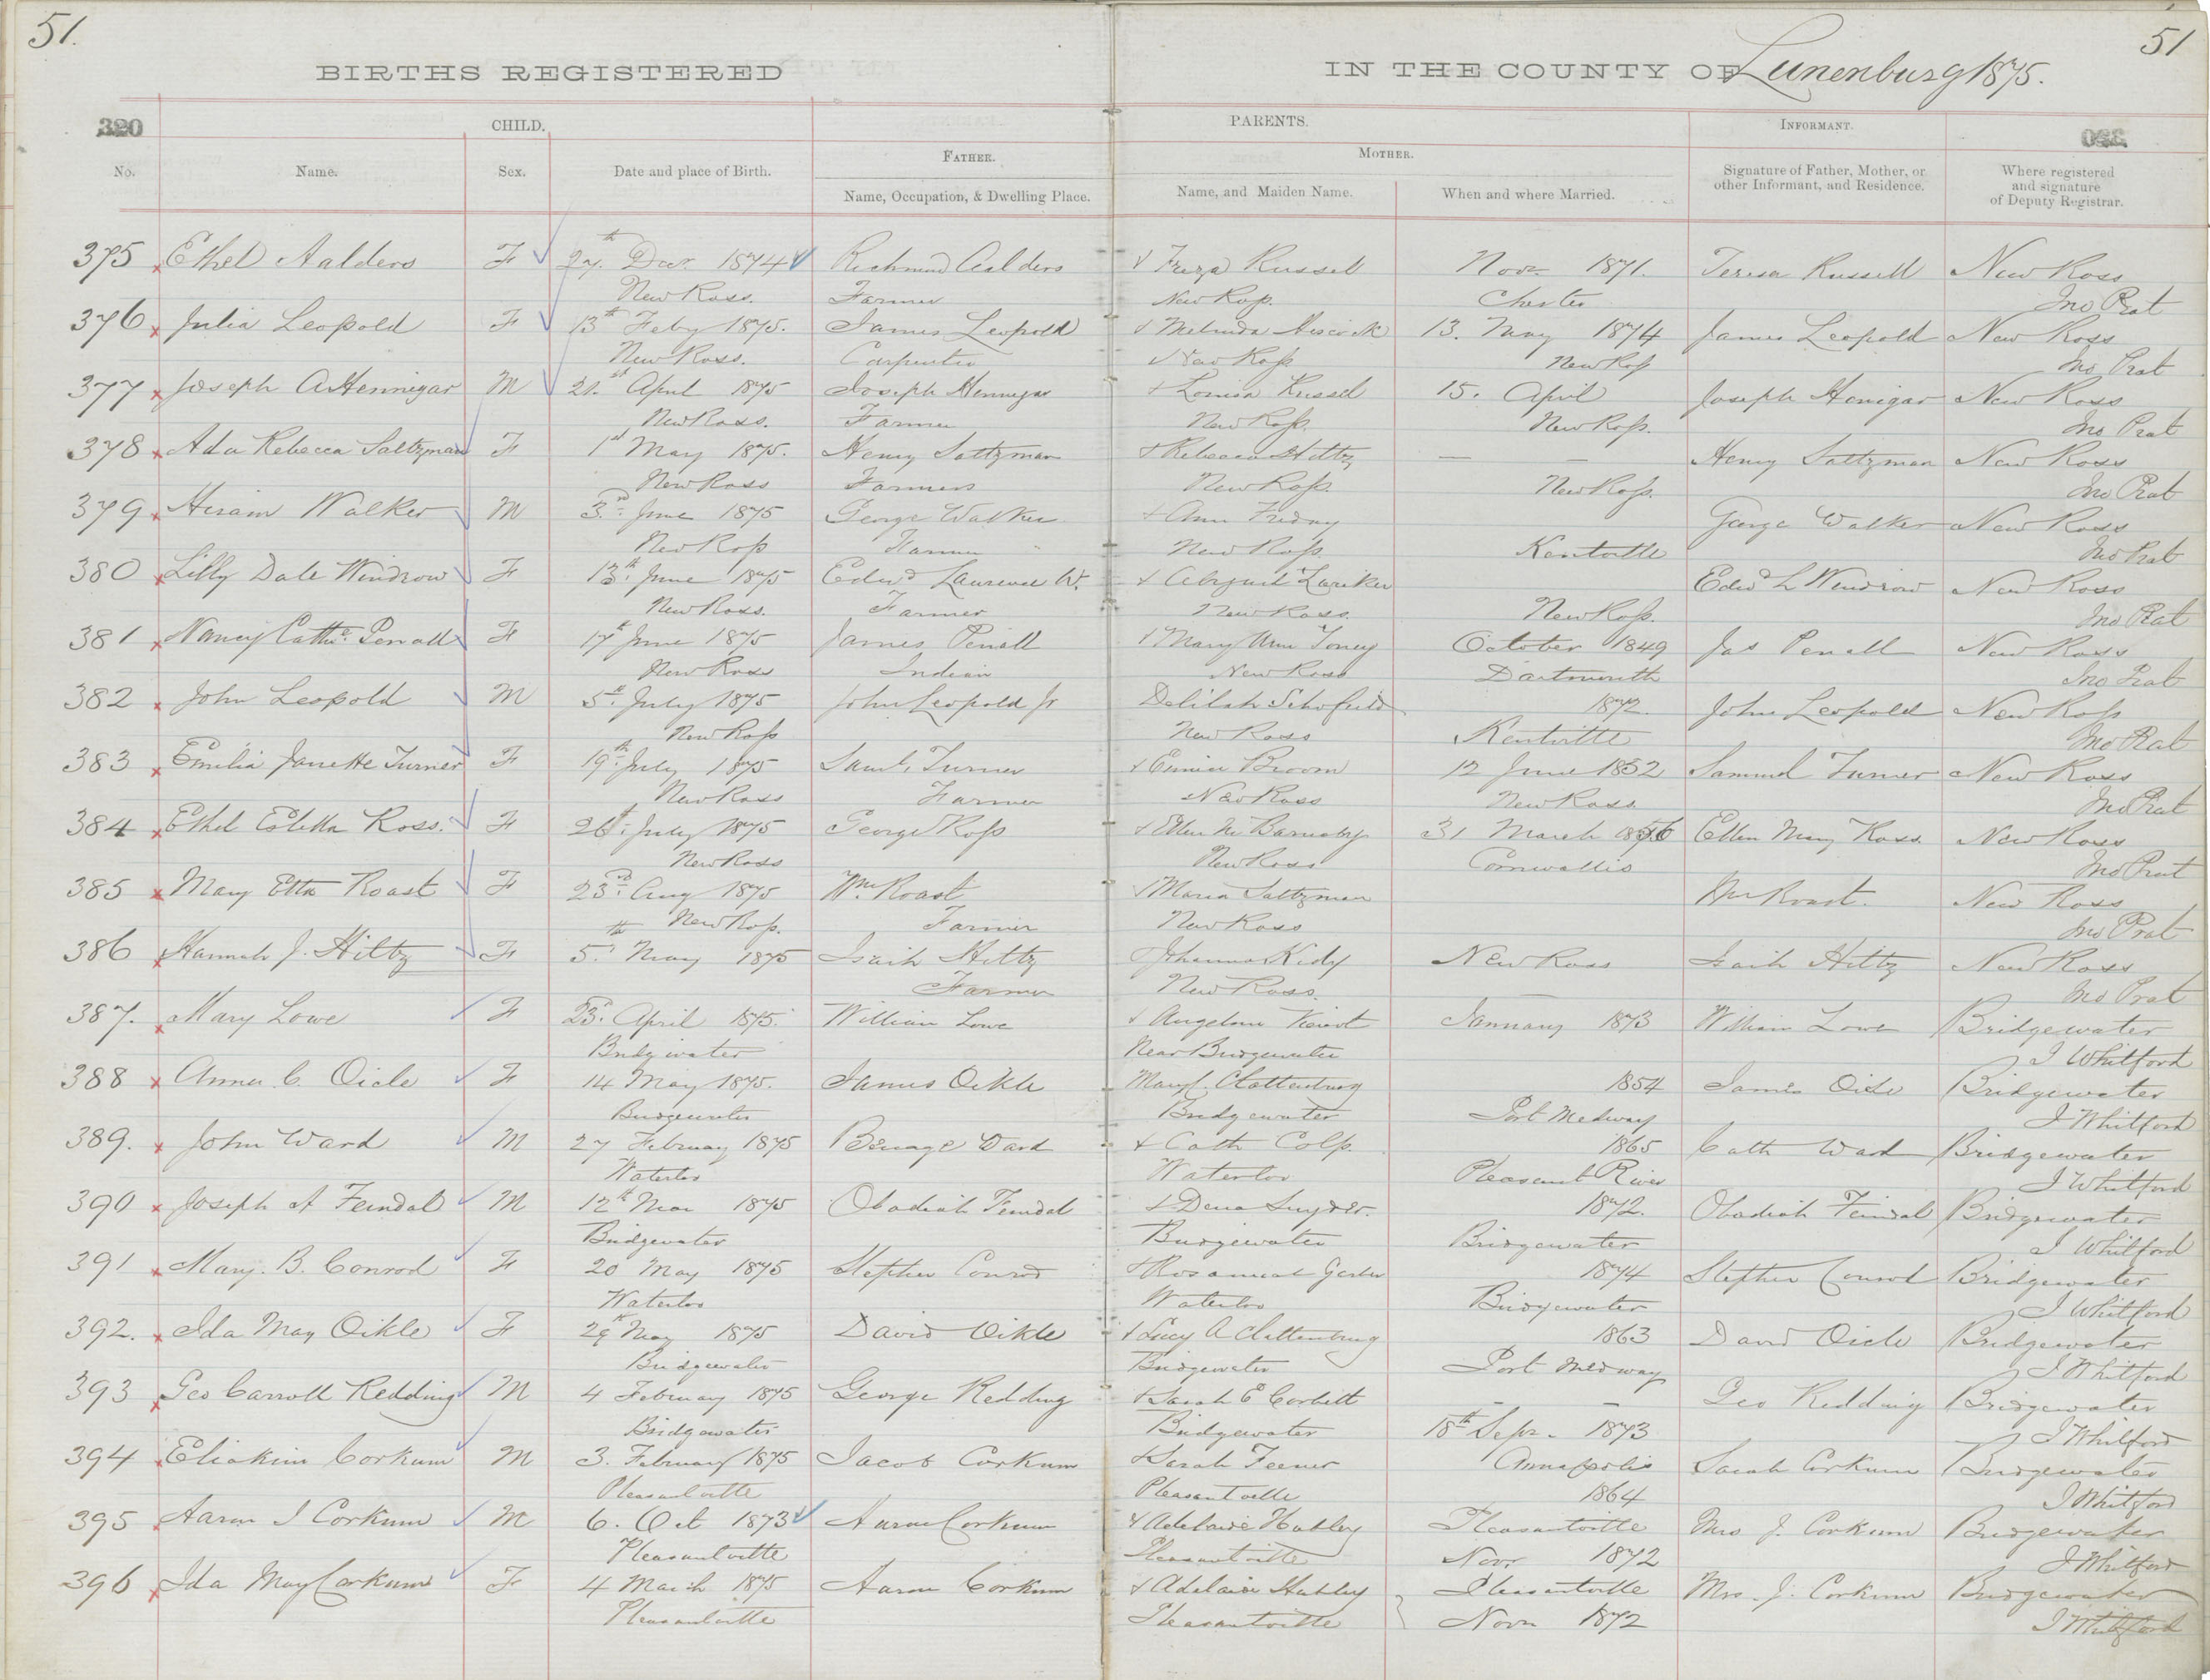 51.
51
BIRTHS REGISTERED IN THE COUNTY OF Lunenburg 1875.
320
CHILD.
PARENTS.
INFORMANT.
FATHER.
MOTHER.
No.
Name.
Sex.
Date and place of Birth.
Name, Occupation, & Dwelling Place.
Name, and Maiden Name.
When and where Married.
Signature of Father, Mother, or
other Informant, and Residence.
Where registered
and signature
of Deputy Registrar.
375 Ethel Aalders F 27th Decr. 1874 Richmond Aalders Russel Novr 1871. Teresa Russell New Ross
New Ross. Farmer New Ross. Chester Jno Prat
376 Julia Leopold F 13th Feby 1875. James Leopold & Melinda Hiscock 13. May 1874 James Leopold New Ross
New Ross. Carpenter New Ross New Ross Jno Prat
377 Joseph A Hennigar M 21st April 1875 Joseph Hennigar & Louisa Russel 15. April Joseph Henigar New Ross
New Ross. Farmer New Ross. New Ross. Jno Prat
378 Ada Rebecca Saltzman F 1st May 1875. Henry Saltzman & Rebecca Hiltz — — Henry Saltzman New Ross
New Ross Farmer New Ross. New Ross. Jno Prat
379 Hiram Walker M 3rd June 1875 George Walker & Ann Friday George Walker New Ross
New Ross Farmer New Ross. Kentville Jno Prat
380 Lilly Dale Windrow F 13th June 1875 Edwd Laurence W. & Abigail Edwd L Windrow New Ross
New Ross. Farmer New Ross. New Ross. Jno Prat
381 Nancy Cathe. Penall F 17th June 1875 James Penall & Mary Ann Toney October 1849 Jas Penall New Ross
New Ross Indian New Ross Dartmouth Jno Prat
382 John Leopold M 5th July 1875 John Leopold Jr Delilah Schofield 1872. John Leopold New Ross
New Ross New Ross Kentville Jno Prat
383 Emilia Janette Turner F 19th July 1875 Saml. Turner & Broom 12 June 1852 Samuel Turner New Ross
New Ross Farmer New Ross New Ross Jno Prat
384 Ethel Ross. F 26th July 1875 George Ross & Ellen M Barnaby 31 March Ellen Mary Ross. New Ross
New Ross New Ross Cornwallis Jno Prat
385 Mary Etta Roast F 23rd Aug 1875 Wm. Roast & Maria Saltzman Wm Roast. New Ross
New Ross. Farmer New Ross Jno Prat
386 Hannah J. Hiltz F 5th May 1875 Isaih Hiltz Johanna New Ross Isaih Hiltz New Ross
Farmer New Ross. Jno Prat
387. Mary Lowe F 23rd April 1875. William Lowe & January 1873 William Lowe Bridgewater
Bridgewater Near Bridgewater J Whitford
388 Anna C. Oicle F 14 May 1875. James Oikle Chattenburg 1854 James Oicle Bridgewater
Bridgewater Bridgewater Port Medway J Whitford
389. John Ward M 27 February 1875 Ward & Cath Colp. 1865 Cath Ward Bridgewater
Waterloo Waterloo Pleasant River J Whitford
390 Joseph A Feindal M 12th 1875 Obadiah Feindel & Dena Snyder. 1872. Obadiah Feindal Bridgewater
Bridgewater Bridgewater Bridgewater J Whitford
391 Mary. B. Conrod F 20 May 1875 Stephen Conrod 1874 Stephen Conrod Bridgewater
Waterloo Waterloo Bridgewater J Whitford
392. Ida May Oikle F 29th May 1875 David Oikle & Lucy A Chattenburg 1863 David Oicle Bridgewater
Bridgewater Bridgewater Port Medway J Whitford
393 Geo Carroll Redding M 4 February 1875 George Redding & Sarah E Corbitt — — Geo Redding Bridgewater
Bridgewater Bridgewater 18th Sepr. 1873 J Whitford
394 Eliakim Corkum M 3. February 1875 Jacob Corkum & Sarah Feener Annapolis Sarah Corkum Bridgewater
Pleasantville Pleasantville 1864 J Whitford
395 Aaron I Corkum M 6. Oct 1873 Aaron Corkum & Adelaide Hubley Pleasantville Mrs J. Corkum Bridgewater
Pleasantville Pleasantville Novr 1872 J Whitford
396 Ida May Corkum F 4 March 1875 Aaron Corkum & Adelaide Hubley Pleasantville Mrs. J. Corkum Bridgewater
Pleasantville Pleasantville Novr 1872 J Whitford